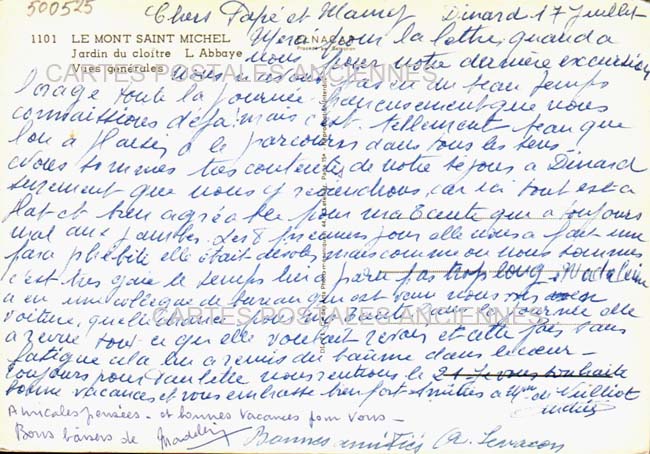 500525
Chers Papé et Mamey Dinard 17 Juillet
1101 LE MONT SAINT MICHEL
Jardin du cloître L Abbaye
Vues générales
Merci pour la lettre, quand a
nous pour notre dernière excursion
nous pas eu du beau temps
l'orage toute la journée heureusement que nous
connaissions déjà mais c'est tellement beau que
l'on a plaisir a le parcourir dans tous les sens
Nous sommes tres contents de notre séjour a Dinard
surement que nous y reviendrons, car ici tout est a
plat et bien agréable pour ma Tante qui a toujours
mal aux jambes. Les 8 premiers jour elle nous a fait une
para phlébite elle était désolée mais comme on nous sommes
c'est tres gaie le temps lui a paru pas trop long, Madeleine
a eu une collegue de bureau qui est venu nous voir avec
voiture, quelle chance nous la journée elle
a revue tout ce que elle voulait revoir et cette fois sans
fatigue cela lui a remis du baume dans le coeur
toujours pour nous rentrons le 21 Je vous souhaite
bonne vacances et vous embrasse bien fort amitiés a Mme de Vielliot
Amicales pensées - et bonnes vacances pour vous -
Bons baisers de Madeleine
Bonnes amitiés
CARTES POSTALES ANCIENNES
CARTES POSTALES ANCIENNES